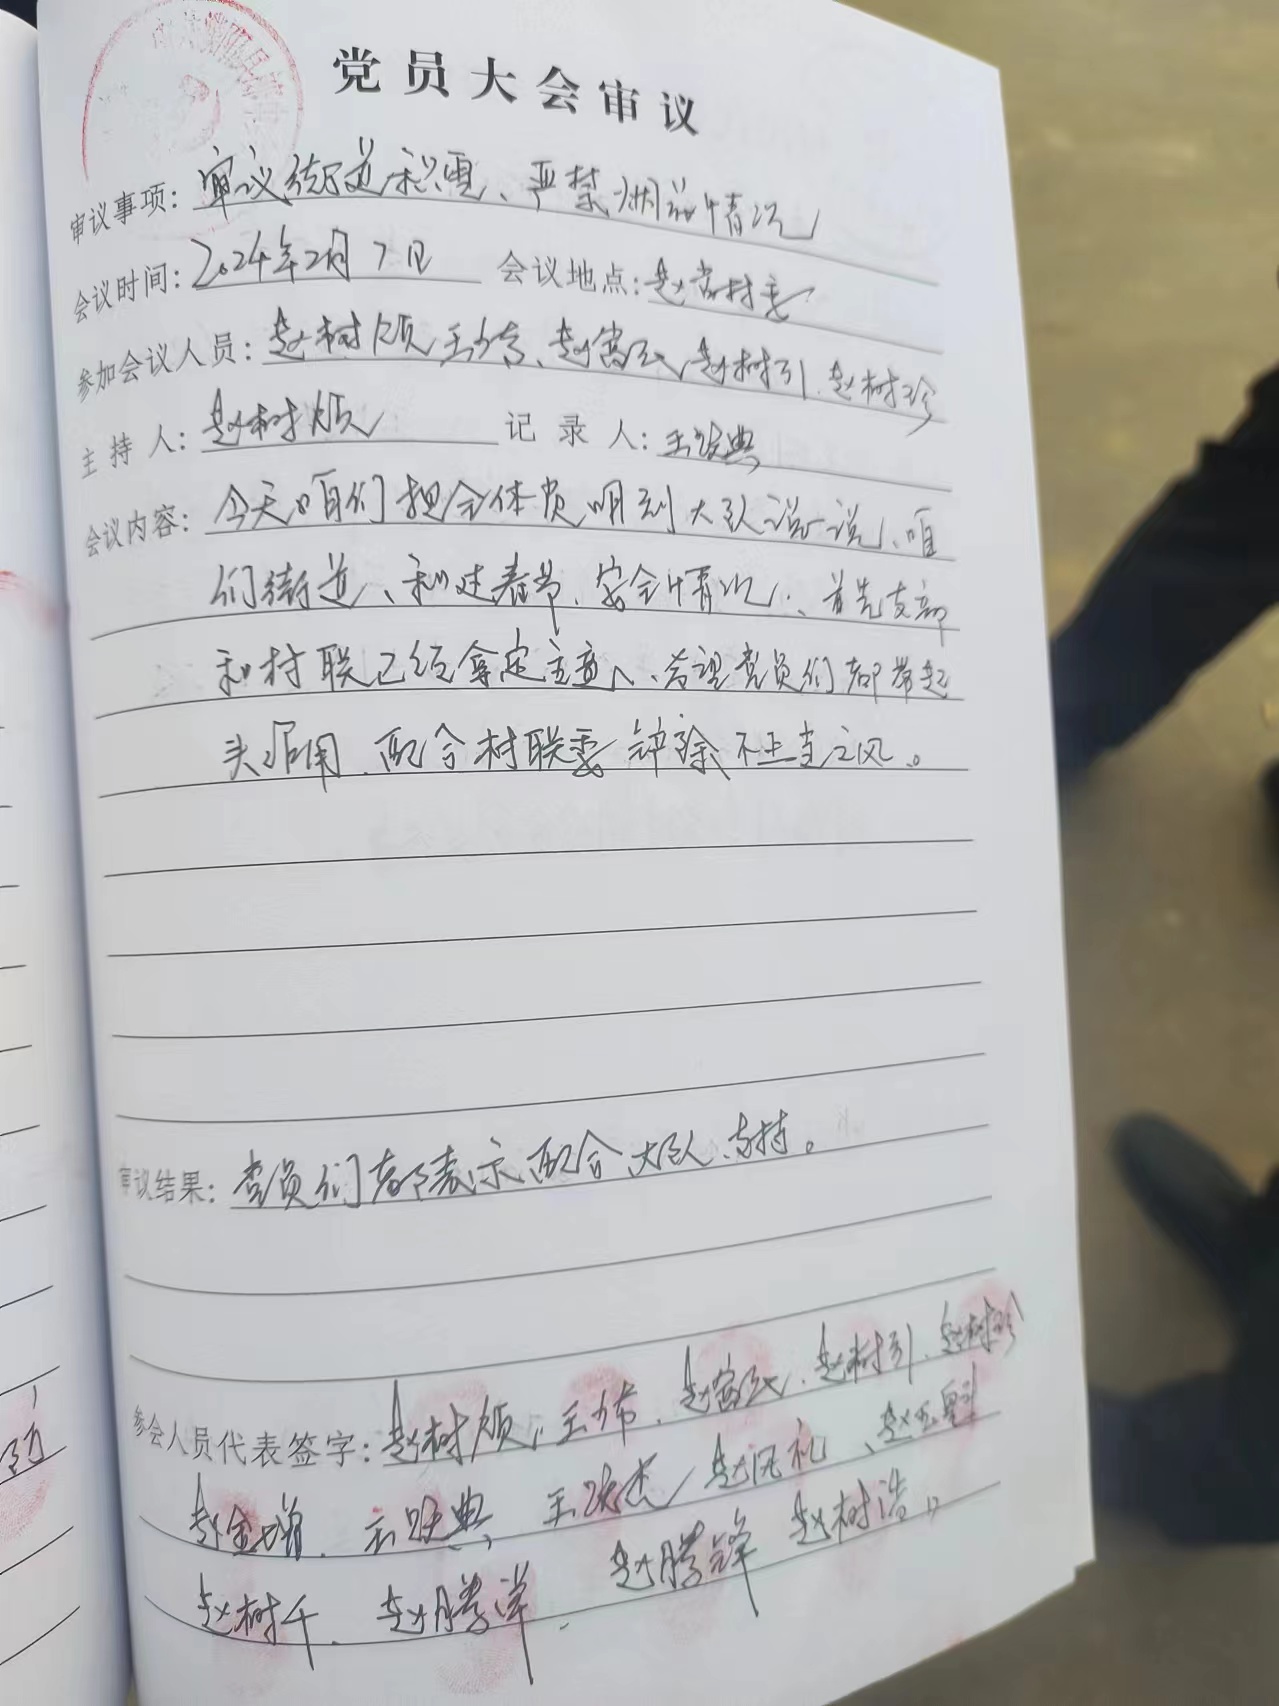 党员大会审议
审议事项: 审议街道积雪、严禁烟花情况
会议时间: 2024年2月7日 会议地点: 赵常村委
参加会议人员: 赵树 王 赵 赵树引 赵树珍
主持人: 赵树 记录人: 王跃典
会议内容: 今天咱们把全体党 到大队说一说、咱
们街道、和过春节、安全情况、首先支部
和村联已经拿定主意、希望党员们都带起
头作用、配合村联委 除不正当之风。
审议结果: 党员们都表示配合大队、支持。
参会人员代表签字: 赵树 王 赵 赵树引、赵树珍
赵金增、王跃典、王跃杰 赵风礼、赵五魁
赵树千、赵腾洋、赵腾锋 赵树浩